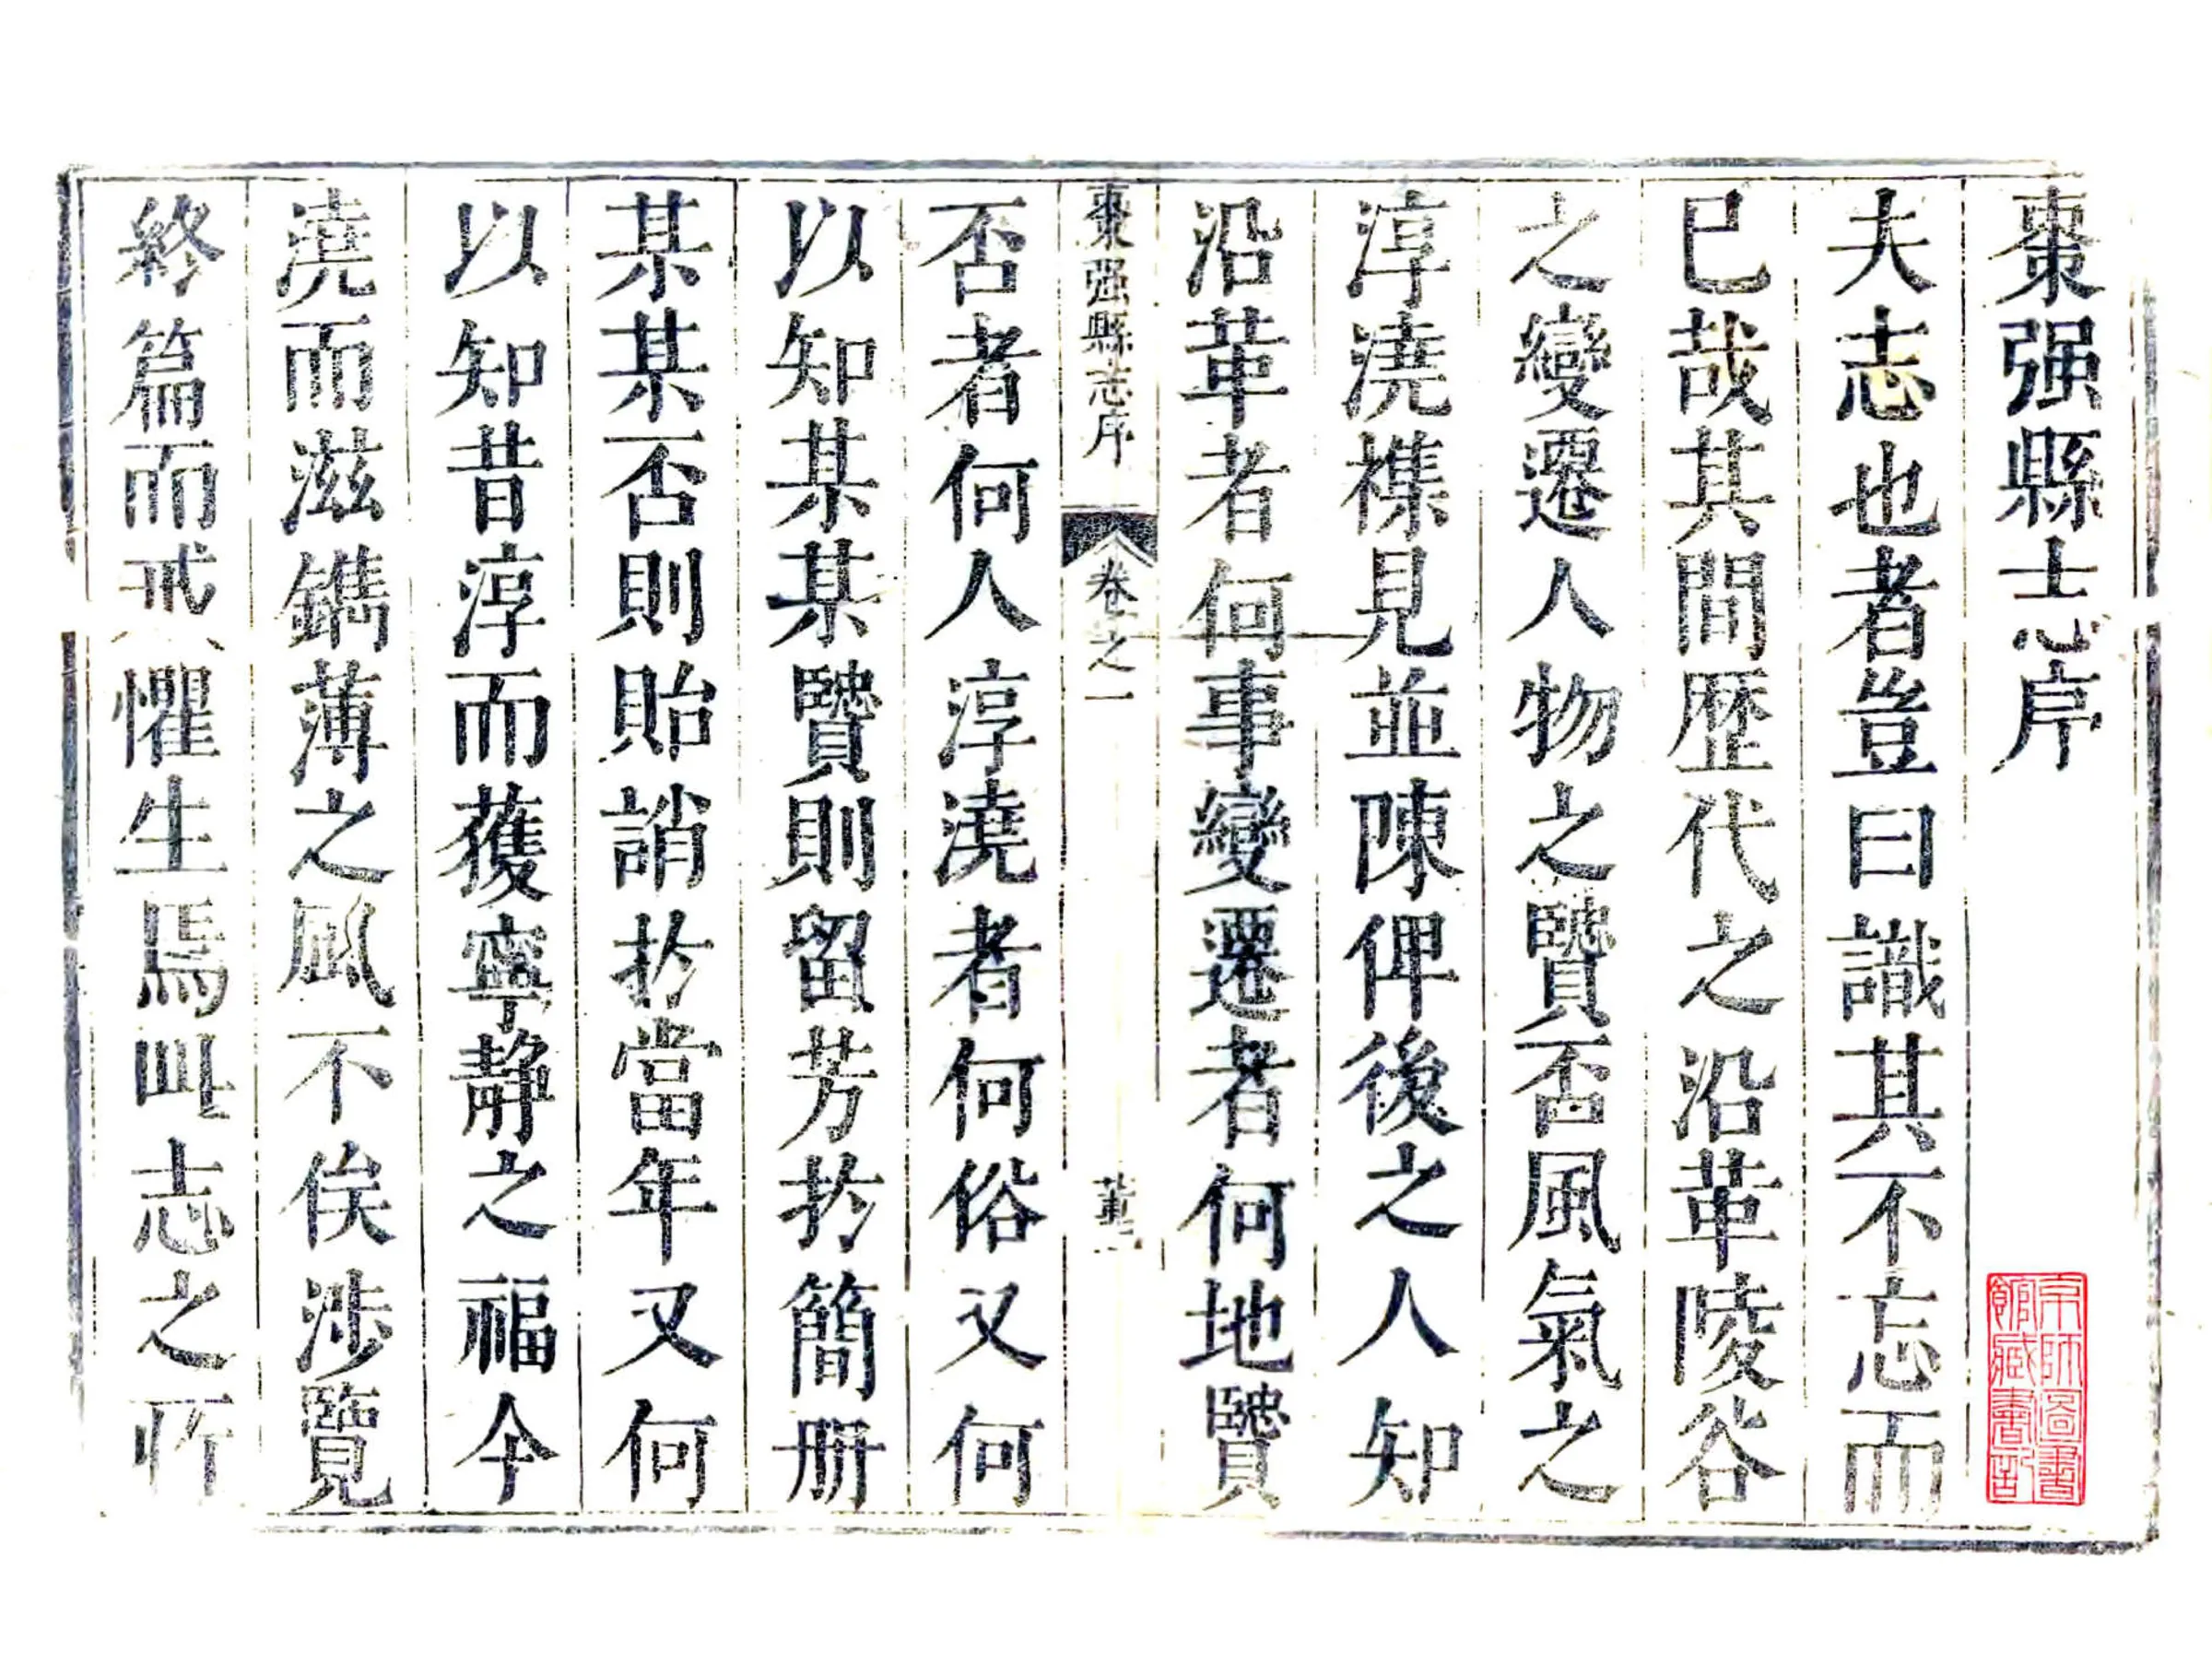 棗强縣志序
夫志也者豈曰識其不忘而
已哉其間歷代之沿革陵谷
之變遷人物之贒否風氣之
淳澆襍見並陳俾後之人知
沿革者何事變遷者何地贒
棗强縣志序 卷之一
否者何人淳澆者何俗又何
以知某某贒則留芳於簡册
某某否則貽誚於當年又何
以知昔淳而獲寧靜之福今
澆而滋鐫薄之風不俟涉覽
終篇而戒懼生焉此志之所
京師圖書
館藏書記